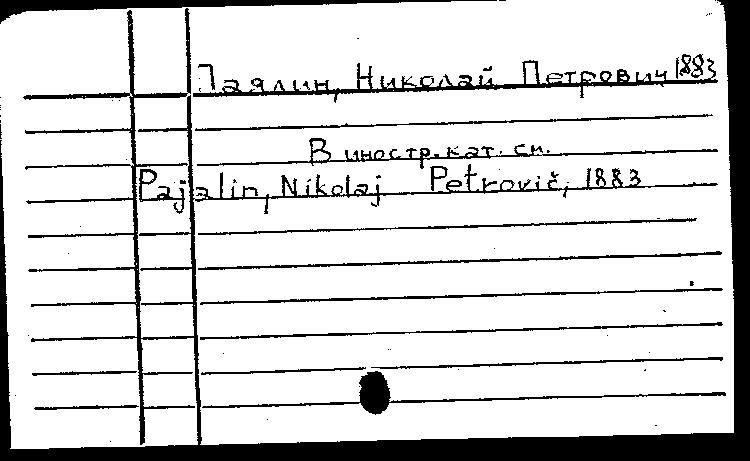 Паялин, Николай Петрович 1883
В иностр. кат. см.
Pajalin, Nikolaj Petrovič, 1883